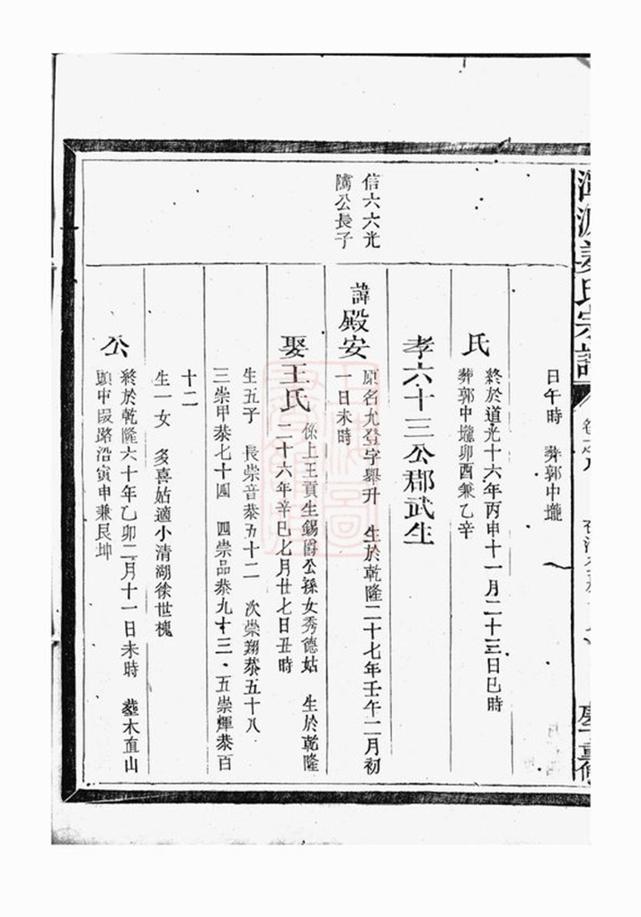 姜氏宗譜
日午時 葬郭中壠
氏 終於道光十六年丙申十一月二十三日巳時
葬郭中壠卯酉兼乙辛
孝六十三公郡武生
信六六光
隣公長子
諱殿安 原名允登字舉升 生於乾隆二十七年壬午二月初
一日未時
娶王氏 係上王貢生錫爵公孫女秀德姑 生於乾隆
二十六年辛巳七月廿七日丑時
生五子 長崇音恭五十二 次崇翔恭五十八
三崇甲恭七十四 四崇品恭九十三 五崇輝恭百
十二
生一女 多喜姑適小清湖徐世槐
公 終於乾隆六十年乙卯二月十一日未時 葬木直山
頭中段路沿寅申兼艮坤